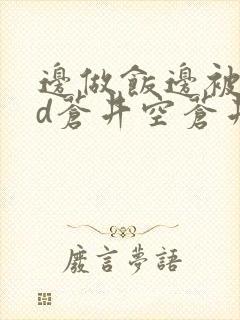 邊做飯邊被
d蒼井空蒼井
廢言夢語